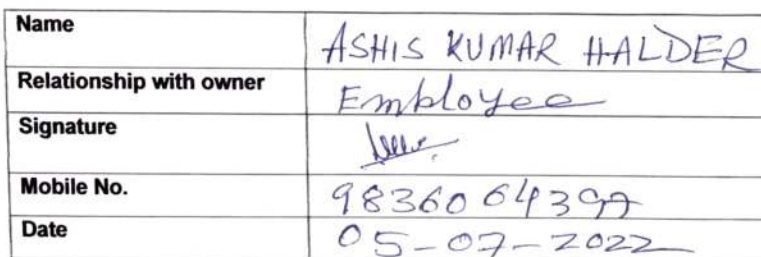 Name ASHIS KUMAR HALDER
Relationship with owner Employee
Signature
Mobile No. 9836064397
Date 05-07-2022